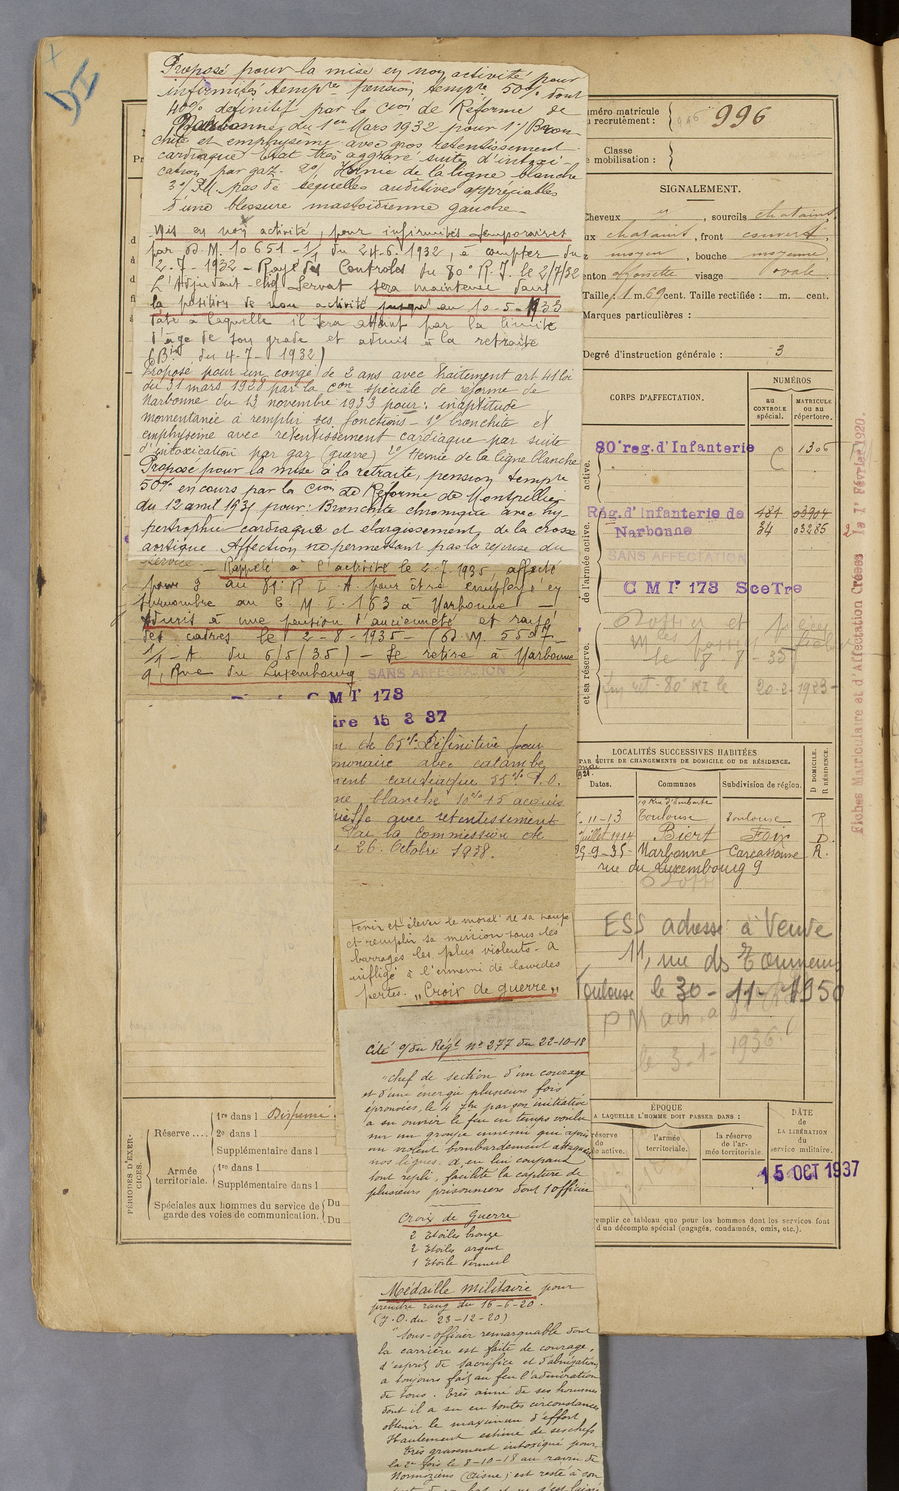 Proposé pour la mise en non activité pour
infirmités tempres pension tempre 50% dont
40% definitif par la Cion de Réforme de
Narbonne, du 1er Mars 1932 pour 1°/ Bron-
chite et emphysème avec gros retentissement
cardiaque Etat très aggravé suite d'intoxi-
cation par gaz. 2°/ Hernie de la ligne blanche
3°/ P.I. pas de sequelles auditives appréciables
d'une blessure mastoïdienne gauche
Mis en non activité, pour infirmités temporaires
par D.M. 10651-1/1 du 24-6-1932, à compter du
2-7-1932 - Rayé des Controles du 80e R.I. le 2/7/32
L'Adjudant-chef Servat sera maintenu dans
la position de non activité jusqu'au 10-5-1933
date à laquelle il sera atteint par la limite
d'âge de son grade et admis à la retraite
du 4-7-1932)
Proposé pour un congé de 2 ans avec traitement art 41 loi
du 31 mars 1928 par la Con spéciale de réforme de
Narbonne du 13 novembre 1933 pour: inaptitude
momentanée à remplir ses fonctions - 1°/ bronchite et
emphysème avec retentissement cardiaque par suite
d'intoxication par gaz (guerre) 2°/ Hernie de la ligne blanche
Proposé pour la mise à la retraite, pension tempre
50% en cours par la Cion de Réforme de Montpellier
du 12 avril 1935 pour: Bronchite chronique avec hy-
pertrophie cardiaque et elargissement de la crosse
aortique Affection ne permettant pas la reprise du
service - Rappelé à l'activité le 2-7-1935, affecté
pour au C M I. 163 à Narbonne -
Admis à une pension d'ancienneté et rayé
des cadres le 2-8-1935 - (D.M 5507
1/1 -A du 6/5/35) - Se retire à Narbonne
9, Rue du Luxembourg
SANS AFFECTATION
C M I 173
ire 15 3 37
de 65% Définitive pour
monaire avec catarrhe
ment cardiaque 55% P.O.
ne blanche 10% + 5 acquis
avec retentissement
Par la Commission de
26 Octobre 1938.
Tenir et élever le moral de sa troupe
et remplir sa mission sous les
barrages les plus violents. A
infligé à l'ennemi de lourdes
pertes. „Croix de guerre„
Cité o/du Régt n° 277 du 22-10-18
"Chef de section d'un courage
et d'une énergie plusieurs fois
éprouvés, le 4 7bre par son initiative
a su ouvrir le feu en temps voulu
sur un groupe ennemi qui après
un violent bombardement attaquait
nos lignes. A en lui coupant
tout repli, facilité la capture de
plusieurs prisonniers dont 1 officier
Croix de Guerre
2 Etoiles bronze
2 Etoiles argent
1 Etoile vermeil
Médaille militaire pour
prendre rang du 16-6-20.
(J.O. du 23-12-20)
"Sous-officier remarquable dont
la carrière est faite de courage,
d'esprit de sacrifice et d'abnégation
a toujours fait au feu l'admiration
de tous. Très aimé de ses hommes
dont il a su en toutes circonstances
obtenir le maximum d'effort,
Hautement estimé de ses chefs
Très gravement intoxiqué pour
la 2e fois le 8-10-18 au ravin de
(Aisne) est resté à son
numéro matricule
recrutement :
996
Classe
mobilisation :
SIGNALEMENT.
Cheveux , sourcils chatains
ux chatains, front couvert,
moyen, bouche moyenne,
enton fossette visage ovale.
Taille: 1 m. 69 cent. Taille rectifiée : m. cent.
Marques particulières :
Degré d'instruction générale : 3
CORPS D'AFFECTATION.
NUMÉROS
AU CONTROLE spécial.
MATRICULE OU AU répertoire.
active.
80e reg. d'Infanterie C 1306
de l'armée active.
Rég. d'Infanterie de 484 03904
Narbonne 34 03285 2
SANS AFFECTATION
C M I 173 SceTre
et sa réserve.
20-2-1923
Fiches Matriculaire et d'Affectation Créées le 1er Février 1920.
LOCALITÉS SUCCESSIVES HABITÉES
PAR SUITE DE CHANGEMENTS DE DOMICILE OU DE RÉSIDENCE.
D DOMICILE.
R RÉSIDENCE.
Dates. Communes Subdivision de région.
19 Rue d'Embarthe
11-13 Toulouse Toulouse R
Juillet 1914 Biert Foix D.
25-9-35 Narbonne Carcassonne R.
rue du Luxembourg 9
ESS adressé à Veuve
11, rue des Tourneurs
Toulouse le 30-11-1950
le 3-1- 1936
ÉPOQUE
A LAQUELLE L'HOMME DOIT PASSER DANS :
réserve de active.
l'armée territoriale.
la réserve de l'armée territoriale.
DATE de LA LIBÉRATION du service militaire.
15 OCT 1937
remplir ce tableau que pour les hommes dont les services font
d'un décompte spécial (engagés, condamnés, omis, etc.).
PÉRIODES D'EXERCICES.
Réserve ....
1re dans l Dispensé.
2e dans l
Supplémentaire dans l
Armée territoriale.
1re dans l
Supplémentaire dans l
Spéciales aux hommes du service de garde des voies de communication.
Du
Du
DI